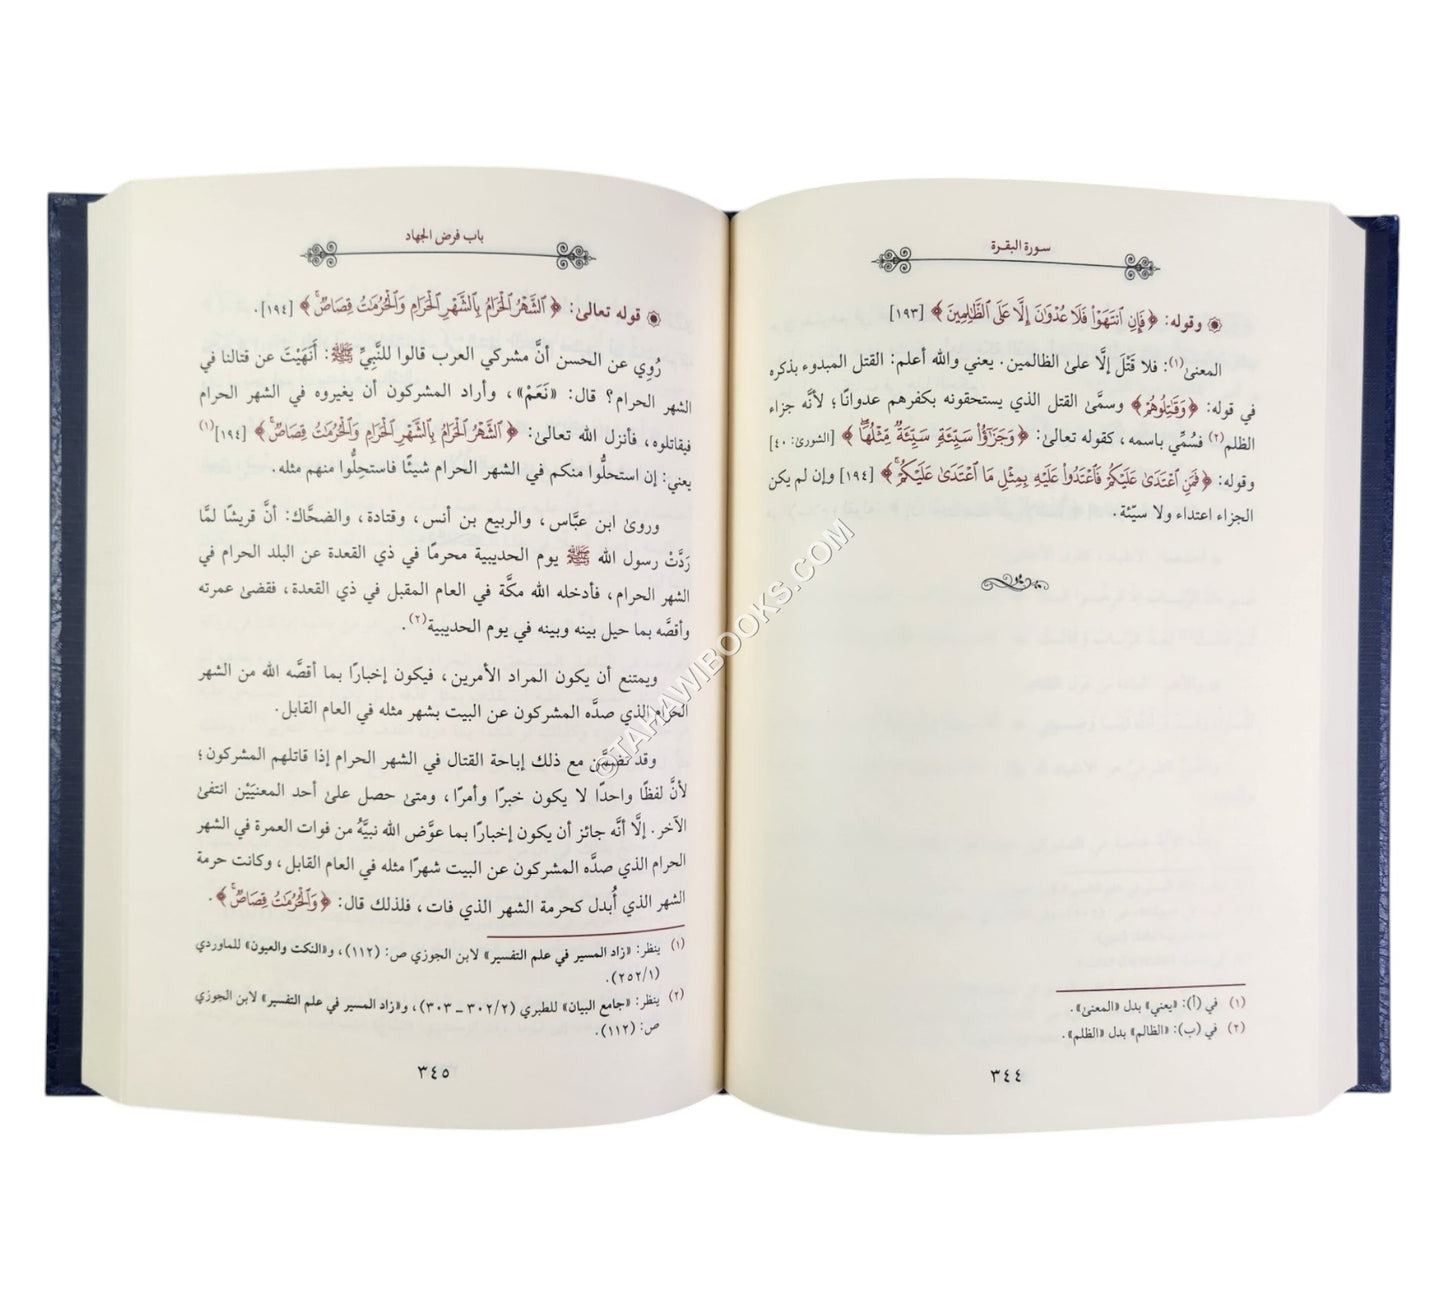 سورة البقرة
وقوله: ﴿فَإِنِ ٱنتَهَوۡاْ فَلَا عُدۡوَٰنَ إِلَّا عَلَى ٱلظَّٰلِمِينَ﴾ [١٩٣]
المعنىٰ(١): فلا قَتْلَ إلَّا علىٰ الظالمين. يعني والله أعلم: القتل المبدوء بذكره
في قوله: ﴿وَقَٰتِلُوهُمۡ﴾ وسمَّىٰ القتل الذي يستحقونه بكفرهم عدوانًا؛ لأنَّه جزاء
الظلم(٢) فسُمِّي باسمه، كقوله تعالىٰ: ﴿وَجَزَٰٓؤُاْ سَيِّئَةٖ سَيِّئَةٞ مِّثۡلُهَاۖ﴾ [الشورىٰ: ٤٠]
وقوله: ﴿فَمَنِ ٱعۡتَدَىٰ عَلَيۡكُمۡ فَٱعۡتَدُواْ عَلَيۡهِ بِمِثۡلِ مَا ٱعۡتَدَىٰ عَلَيۡكُمۡۚ﴾ [١٩٤] وإن لم يكن
الجزاء اعتداء ولا سيّئة.
(١) في (أ): «يعني» بدل «المعنىٰ».
(٢) في (ب): «الظالم» بدل «الظلم».
٣٤٤
باب فرض الجهاد
قوله تعالىٰ: ﴿ٱلشَّهۡرُ ٱلۡحَرَامُ بِٱلشَّهۡرِ ٱلۡحَرَامِ وَٱلۡحُرُمَٰتُ قِصَاصٞۚ﴾ [١٩٤].
رُوِي عن الحسن أنَّ مشركي العرب قالوا للنَّبيِّ ﷺ: أَنَهَيْتَ عن قتالنا في
الشهر الحرام؟ قال: «نَعَمْ»، وأراد المشركون أن يغيروه في الشهر الحرام
فيقاتلوه، فأنزل الله تعالىٰ: ﴿ٱلشَّهۡرُ ٱلۡحَرَامُ بِٱلشَّهۡرِ ٱلۡحَرَامِ وَٱلۡحُرُمَٰتُ قِصَاصٞۚ﴾ [١٩٤](١)
يعني: إن استحلُّوا منكم في الشهر الحرام شيئًا فاستحِلُّوا منهم مثله.
وروىٰ ابن عبَّاس، والربيع بن أنس، وقتادة، والضحَّاك: أنَّ قريشًا لمَّا
رَدَّتْ رسول الله ﷺ يوم الحديبية محرمًا في ذي القعدة عن البلد الحرام في
الشهر الحرام، فأدخله الله مكَّة في العام المقبل في ذي القعدة، فقضىٰ عمرته
وأقصَّه بما حيل بينه وبينه في يوم الحديبية(٢).
ويمتنع أن يكون المراد الأمرين، فيكون إخبارًا بما أقصَّه الله من الشهر
الحرام الذي صدَّه المشركون عن البيت بشهر مثله في العام القابل.
وقد تضمَّن مع ذلك إباحة القتال في الشهر الحرام إذا قاتلهم المشركون؛
لأنَّ لفظًا واحدًا لا يكون خبرًا وأمرًا، ومتىٰ حصل علىٰ أحد المعنيَيْن انتفىٰ
الآخر. إلَّا أنَّه جائز أن يكون إخبارًا بما عوَّض الله نبيَّهُ من فوات العمرة في الشهر
الحرام الذي صدَّه المشركون عن البيت شهرًا مثله في العام القابل، وكانت حرمة
الشهر الذي أُبدل كحرمة الشهر الذي فات، فلذلك قال: ﴿وَٱلۡحُرُمَٰتُ قِصَاصٞۚ﴾.
(١) ينظر: «زاد المسير في علم التفسير» لابن الجوزي ص: (١١٢)، و«النكت والعيون» للماوردي
(٢٥٢/١).
(٢) ينظر: «جامع البيان» للطبري (٣٠٢/٢ ـ ٣٠٣)، و«زاد المسير في علم التفسير» لابن الجوزي
ص: (١١٢).
٣٤٥
©TAHAWIBOOKS.COM